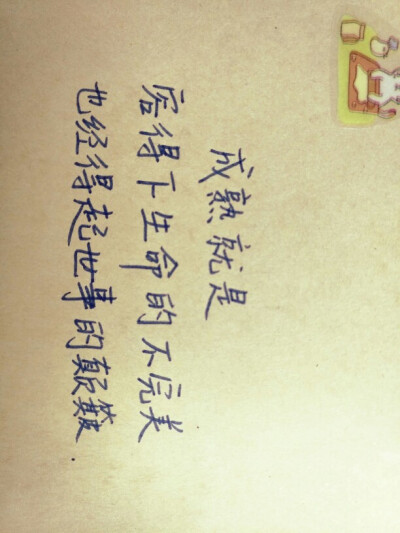 成熟就是
容得下生命的不完美
也经得起世事的颠簸.